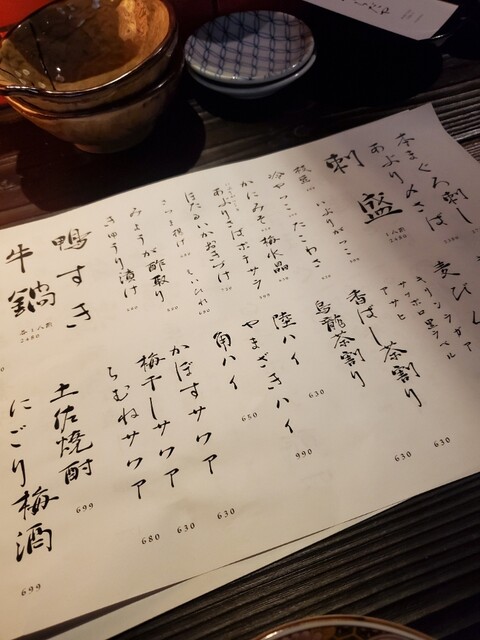 本まぐろ刺し
あぶり〆さば
刺盛
1人前
2480
枝豆
いぶりがっこ
冷やっこ
たこわさ
かにみそ
梅水晶
あぶりさばポテサラ
ほたるいかおきづけ
さつま揚げ
しいたけ
みょうが酢取り
きゅうり漬け
鴨すき
牛鍋
各1人前
2480
麦びーる
キリンラガー
サッポロ黒ラベル
アサヒ
香ばし茶割り
630
烏龍茶割り
630
陸ハイ
630
やまざきハイ
990
角ハイ
650
かぼすサワア
630
梅干しサワア
630
らむねサワア
680
土佐焼酎
699
にごり梅酒
699